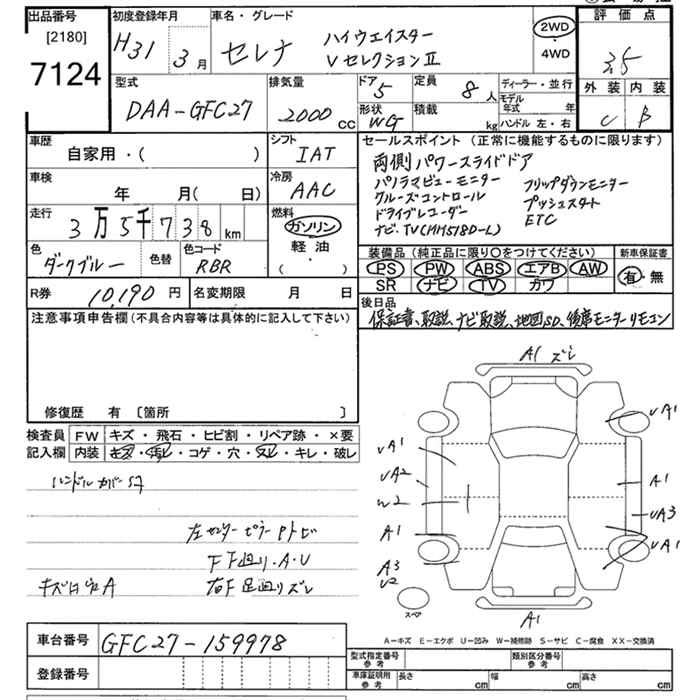 出品番号 初度登録年月 車名・グレード 評価点
[2180]
7124
H31年 3月 セレナ ハイウェイスター
VセレクションⅡ
2WD
・
4WD
3.5
型式 排気量 ドア 定員 ディーラー・並行 外装 内装
DAA-GFC27 2000cc 5 8人
モデル年式 年
形状 積載 ハンドル 左・右
WG kg C B
車歴 シフト セールスポイント(正常に機能するものに限ります)
自家用・( ) IAT
両側パワースライドドア
パノラマビューモニター フリップダウンモニター
クルーズコントロール プッシュスタート
ドライブレコーダー ETC
ナビ、TV(MM518D-L)
車検 冷房
年 月(日) AAC
走行 燃料
3万5千738km ガソリン
・
軽油
・
( )
色 色替 色コード
ダークブルー RBR
装備品(純正品に限り○をつけてください) 新車保証書
PS PW ABS エアB AW 有・無
SR ナビ TV カワ
R券 10,190円 名変期限 月 日
後日品
保証書、取説、ナビ取説、地図SD、後席モニターリモコン
注意事項申告欄(不具合内容等は具体的に記入して下さい)
修復歴 有 [箇所 ]
検査員 FW キズ・飛石・ヒビ割・リペア跡・×要
記入欄 内装 キズ・汚レ・コゲ・穴・スレ・キレ・破レ
ハンドルカバー
左センターピラーPトビ
F下廻リ・A・U
右F足廻リズレ
A1 ズレ
UA1
UA1
UA2
W2
A1
A1
UA3
UA1
A3
U2
スペア
A1
A-キズ E-エクボ U-凹み W-補修跡 S-サビ C-腐食 XX-交換済
車台番号 GFC27-159978
登録番号
型式指定番号
参考
類別区分番号
参考
車庫証明用
参考
長さ cm 幅 cm 高さ cm